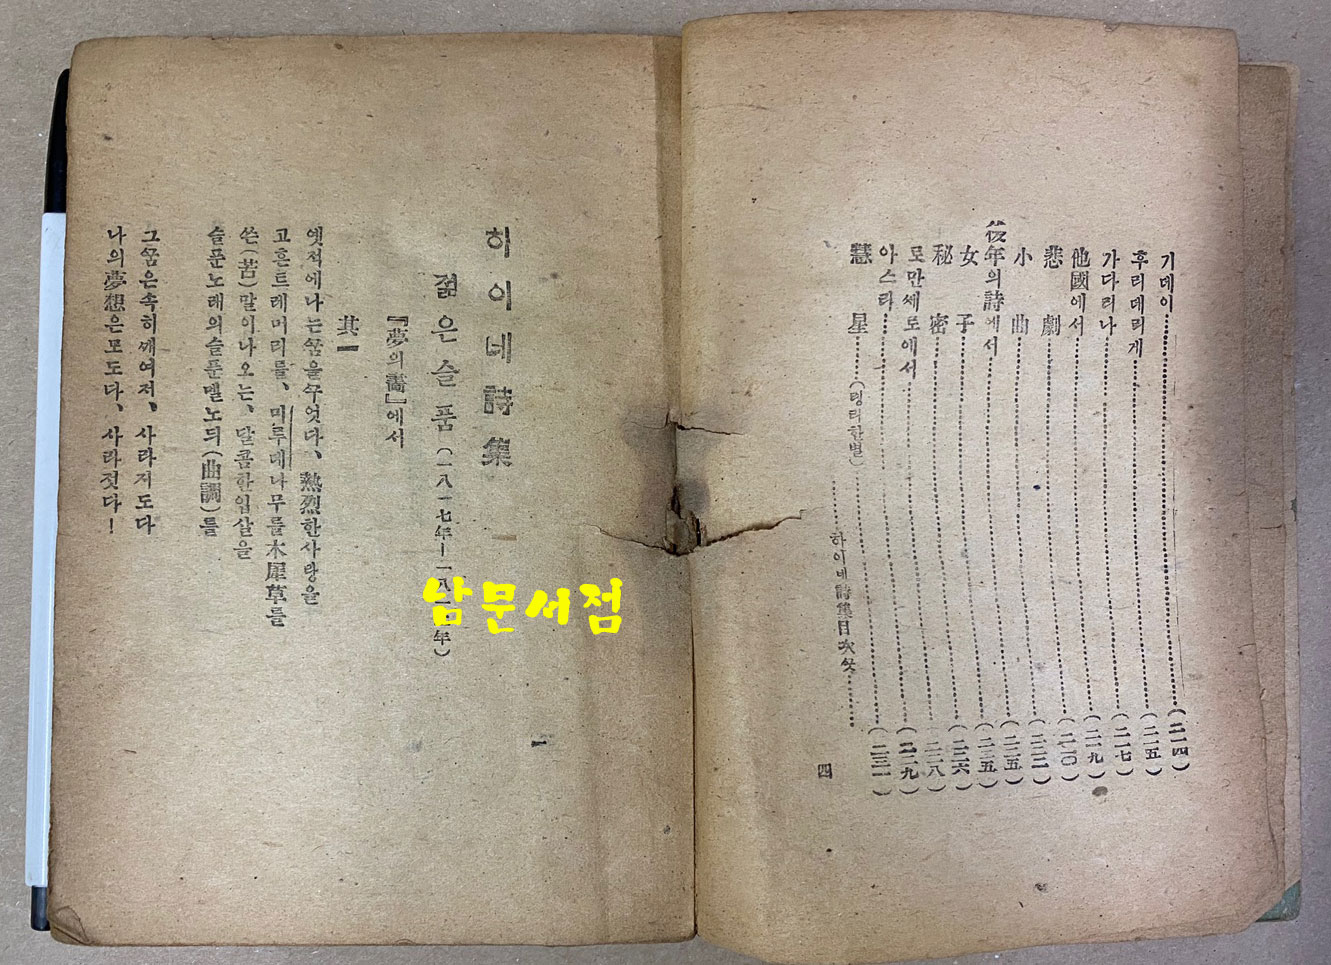 기데이……(二一四)
후리데리게……(二一五)
가다리나……(二一七)
他國에서……(二一九)
悲劇……(二二〇)
小曲……(二二二)
後年의詩에서……(二二五)
女子……(二二五)
秘密……(二二六)
로만세로에서……(二二八)
아스라……(二二九)
慧星……(꼬리한별)……(二三一)
……하이네詩集目次끗……
四
하이네詩集
一
젊은슬픔(一八一七年—一八二一年)
『夢의畵』에서
其一
옛적에나는꿈을꾸엇다、熱烈한사랑을
고흔트레머리를、미루데나무를木犀草를
쓴(苦)말이나오는、달콤한입살을
슬푼노래의슬푼멜노듸(曲調)를
그꿈은속히깨여저、사라지도다
나의夢想은모도다、사라젓다!
남문서점